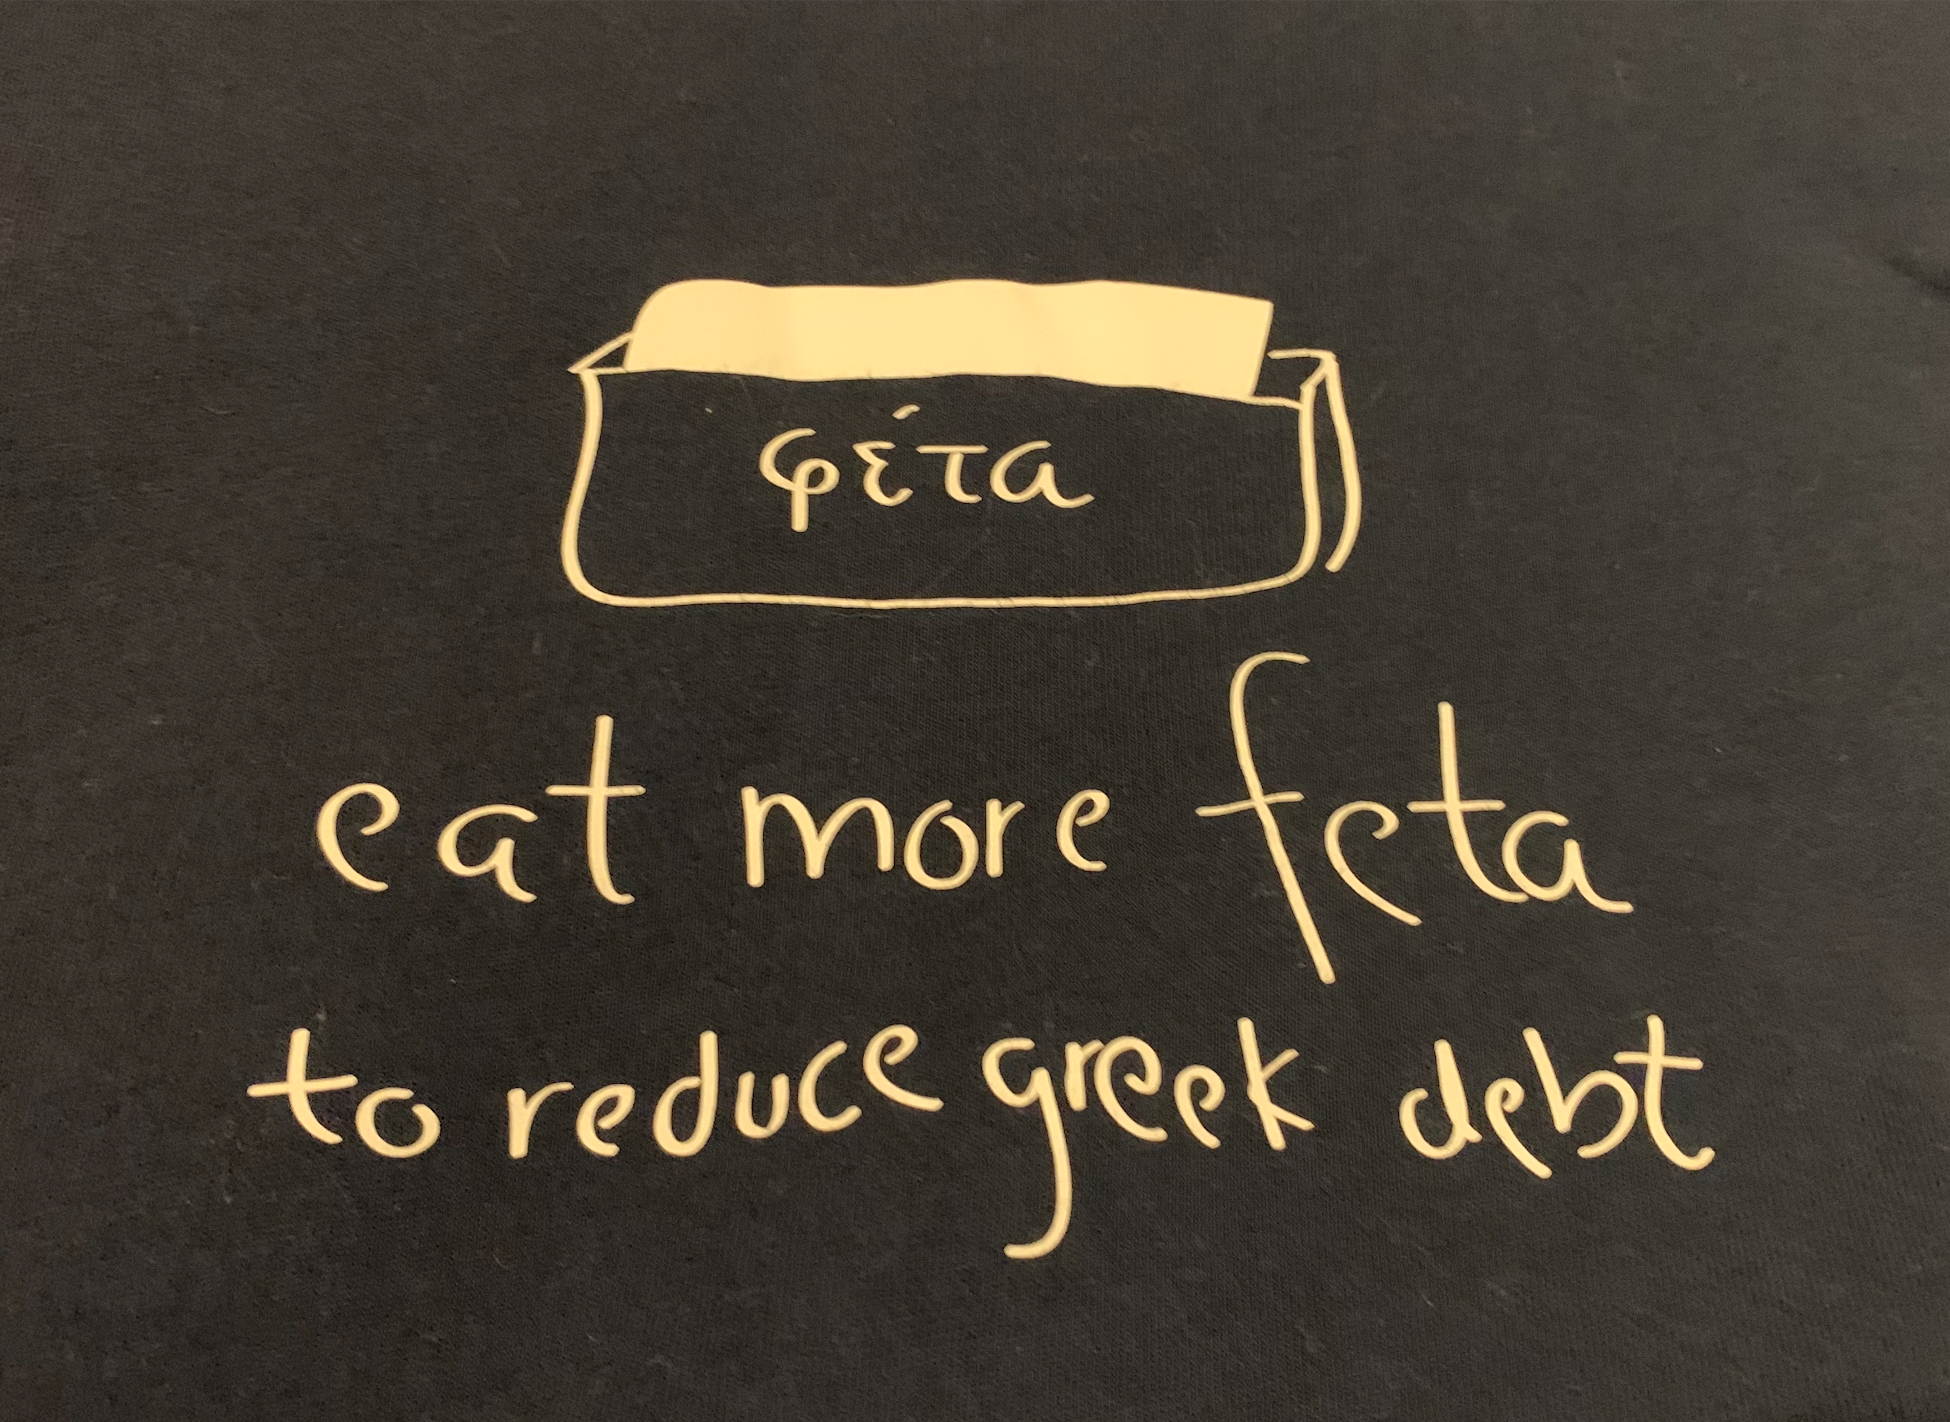 φέτα
eat more feta
to reduce greek debt